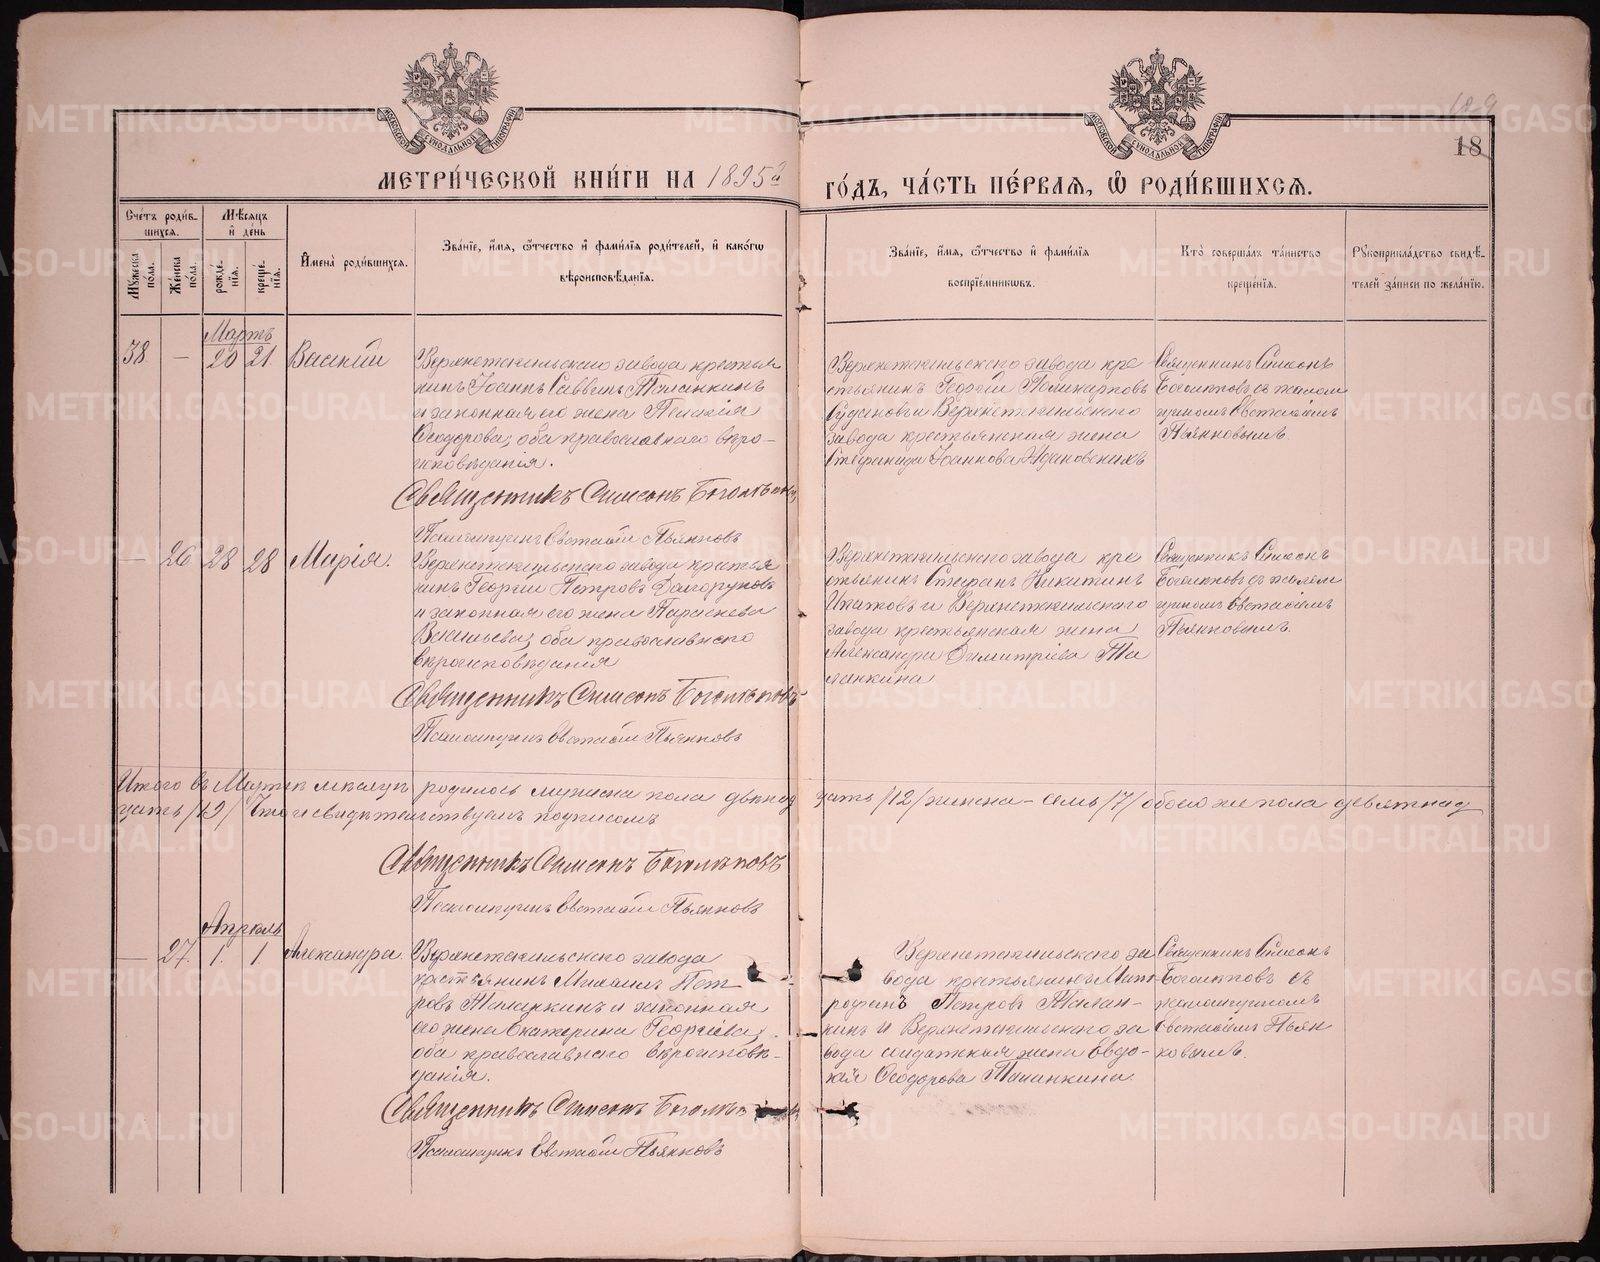 18
МЕТРИ́ЧЕСКОЙ КНИ́ГИ НА 1895й
ГО́ДЪ, ЧА́СТЬ ПЕ́РВАЯ, Ѽ РОДИ́ВШИХСЯ.
Сче́тъ роди́вшихся.
Мѣ́сяцъ и҆ де́нь
Мꙋ́жеска по́ла.
Же́нска по́ла.
рожде́нїѧ.
креще́нїѧ.
И҆мена̀ роди́вшихсѧ.
Зва́нїе, и҆́мѧ, ѻ҆́тчество и҆ фами́лїѧ роди́телей, и҆ како́гѡ
вѣроисповѣ́данїѧ.
Зва́нїе, и҆́мѧ, ѻ҆́тчество и҆ фами́лїѧ
воспрїе́мникѡвъ.
Кто̀ соверша́лъ та́инство
креще́нїѧ.
Рꙋкоприкла́дство свидѣ́телей за́писи по жела́нїю.
Мартъ
38 — 20 21 Василій
Верхнетагильскаго завода крестья
нинъ Іоаннъ Саввинъ Таланкинъ
и законная его жена Пелагія
Ѳеодорова, оба православнаго вѣро-
исповѣданія.
Священникъ Симеонъ Боголѣповъ
Псаломщикъ Евстафій Пьянковъ
Верхнетагильскаго завода кре
стьянинъ Георгій Поликарповъ
завода крестьянская жена
Стефанида Іоаннова
Священникъ Симеонъ
Боголѣповъ съ псалом
щикомъ Евстафіемъ
Пьянковымъ.
— 26 28 28 Марія.
Верхнетагильскаго завода крестья
нинъ Георгій Петровъ Долгоруковъ
и законная его жена Параскева
Васильева, оба православнаго
вѣроисповѣданія
Священникъ Симеонъ Боголѣповъ
Псаломщикъ Евстафій Пьянковъ
Верхнетагильскаго завода кре
стьянинъ Стефанъ Никитинъ
Ипатовъ и Верхнетагильскаго
завода крестьянская жена
Александра Димитріева Та
ланкина
Священникъ Симеонъ
Боголѣповъ съ псалом
щикомъ Евстафіемъ
Пьянковымъ.
Итого въ Мартѣ мѣсяцѣ родилось мужеска пола двѣнад
цать /12/ женска - семь /7/ обоего же пола девятнад
цать /19/ Что и свидѣтельствуемъ подписомъ
Священникъ Симеонъ Боголѣповъ
Псаломщикъ Евстафій Пьянковъ
Апрѣль
— 27. 1. 1 Александра.
Верхнетагильскаго завода
крестьянинъ Михаилъ Пет
ровъ Таланкинъ и законная
его жена Екатерина Георгіева,
оба православнаго вѣроисповѣ-
данія.
Священникъ Симеонъ
Псаломщикъ Евстафій Пьянковъ
Верхнетагильскаго за
вода крестьянинъ Мит
рофанъ Петровъ Талан-
кинъ и Верхнетагильскаго за
вода солдатская жена Евдо-
кія Ѳеодорова Таланкина
Священникъ Симеонъ
Боголѣповъ съ
псаломщикомъ
Евстафіемъ Пьян
ковымъ.
METRIKI.GASO-URAL.RU